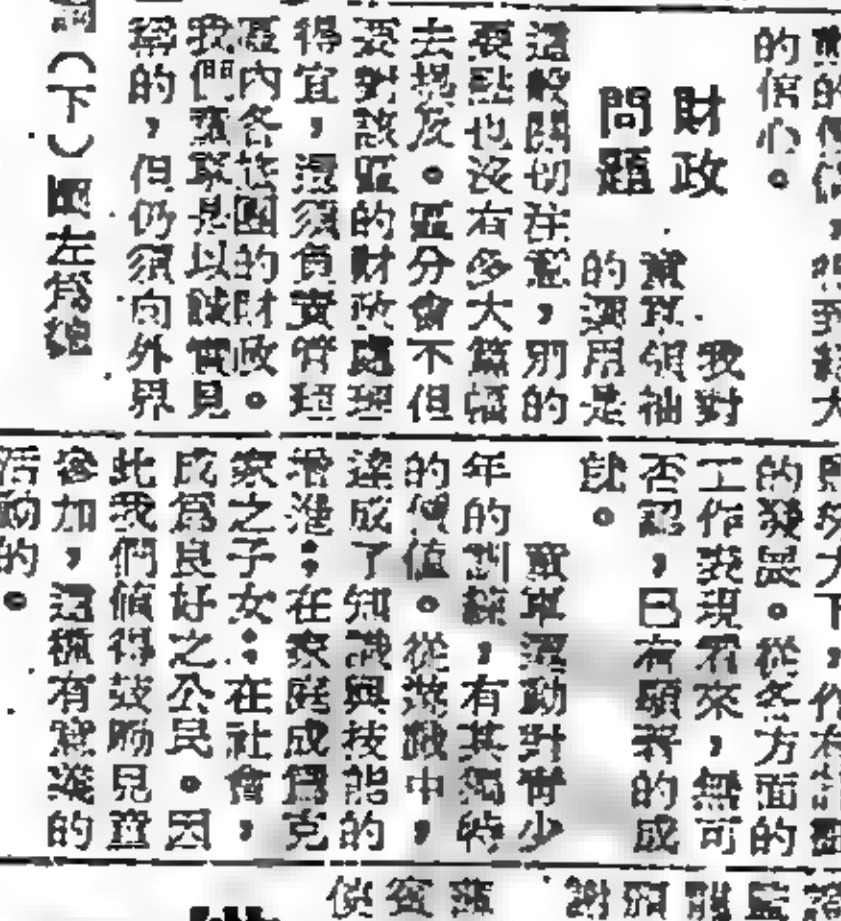 的信心。
財政
問題
我對
童軍領袖
的運用是
這般關切注意,別的
要點也沒有多大篇幅
去提及。區分會不但
要對該區的財政處理
得宜,還須負責管理
區內各旅團的財政。
我們童軍是以誠實見
稱的,但仍須向外界
(下)
的發展。從各方面的
工作表現看來,無可
否認,已有顯著的成
就。
童軍運動對青少
年的訓練,有其獨特
的價值。從遊戲中,
達成了知識與技能的
增進;在家庭成爲克
家之子女;在社會,
成爲良好之公民。因
此我們值得鼓勵兒童
參加,這種有意義的
活動的。